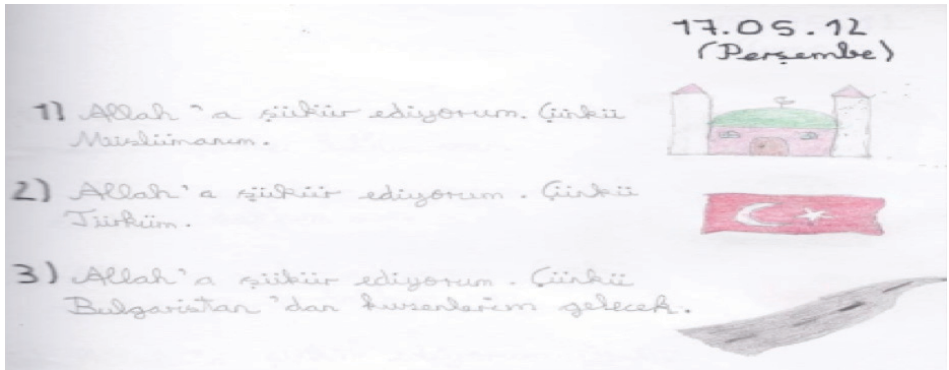 17.05.12
(Perşembe)
1) Allah'a şükür ediyorum. Çünkü
Müslümanım.
2) Allah'a şükür ediyorum. Çünkü
Türküm.
3) Allah'a şükür ediyorum. Çünkü
Bulgaristan'dan kuzenlerim gelecek.